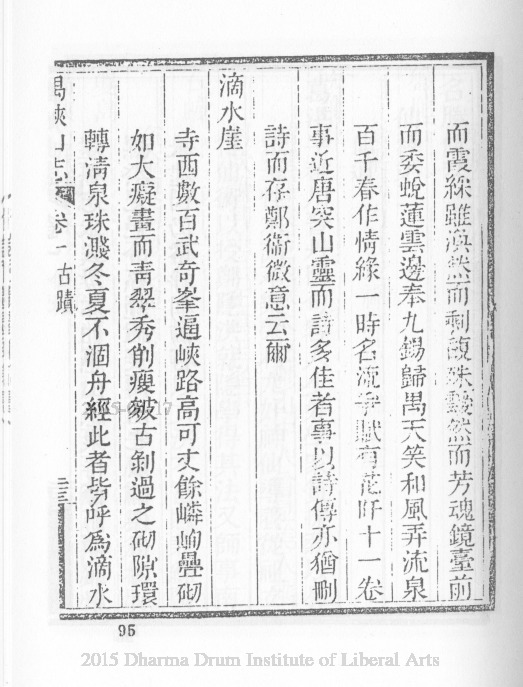 而霞綵雖渙然而剩馥珠
然而芳魂鏡臺前
而委蛻蓮雲邊奉九錫歸禺天笑和風弄流泉
百千春作情緣一時名流爭賦有花阡十一卷
事近唐突山靈而詩多佳者事以詩傳亦猶刪
詩而存鄭衞微意云爾
滴水崖
寺西數百武奇峯逼峽路高可丈餘嶙峋疊砌
如大癡畫而靑翠秀削瘦皴古剝過之砌隙環
轉淸泉珠濺冬夏不涸舟經此者皆呼爲滴水
禺峽山志 卷一 古蹟
二三
95
2015 Dharma Drum Institute of Liberal Arts